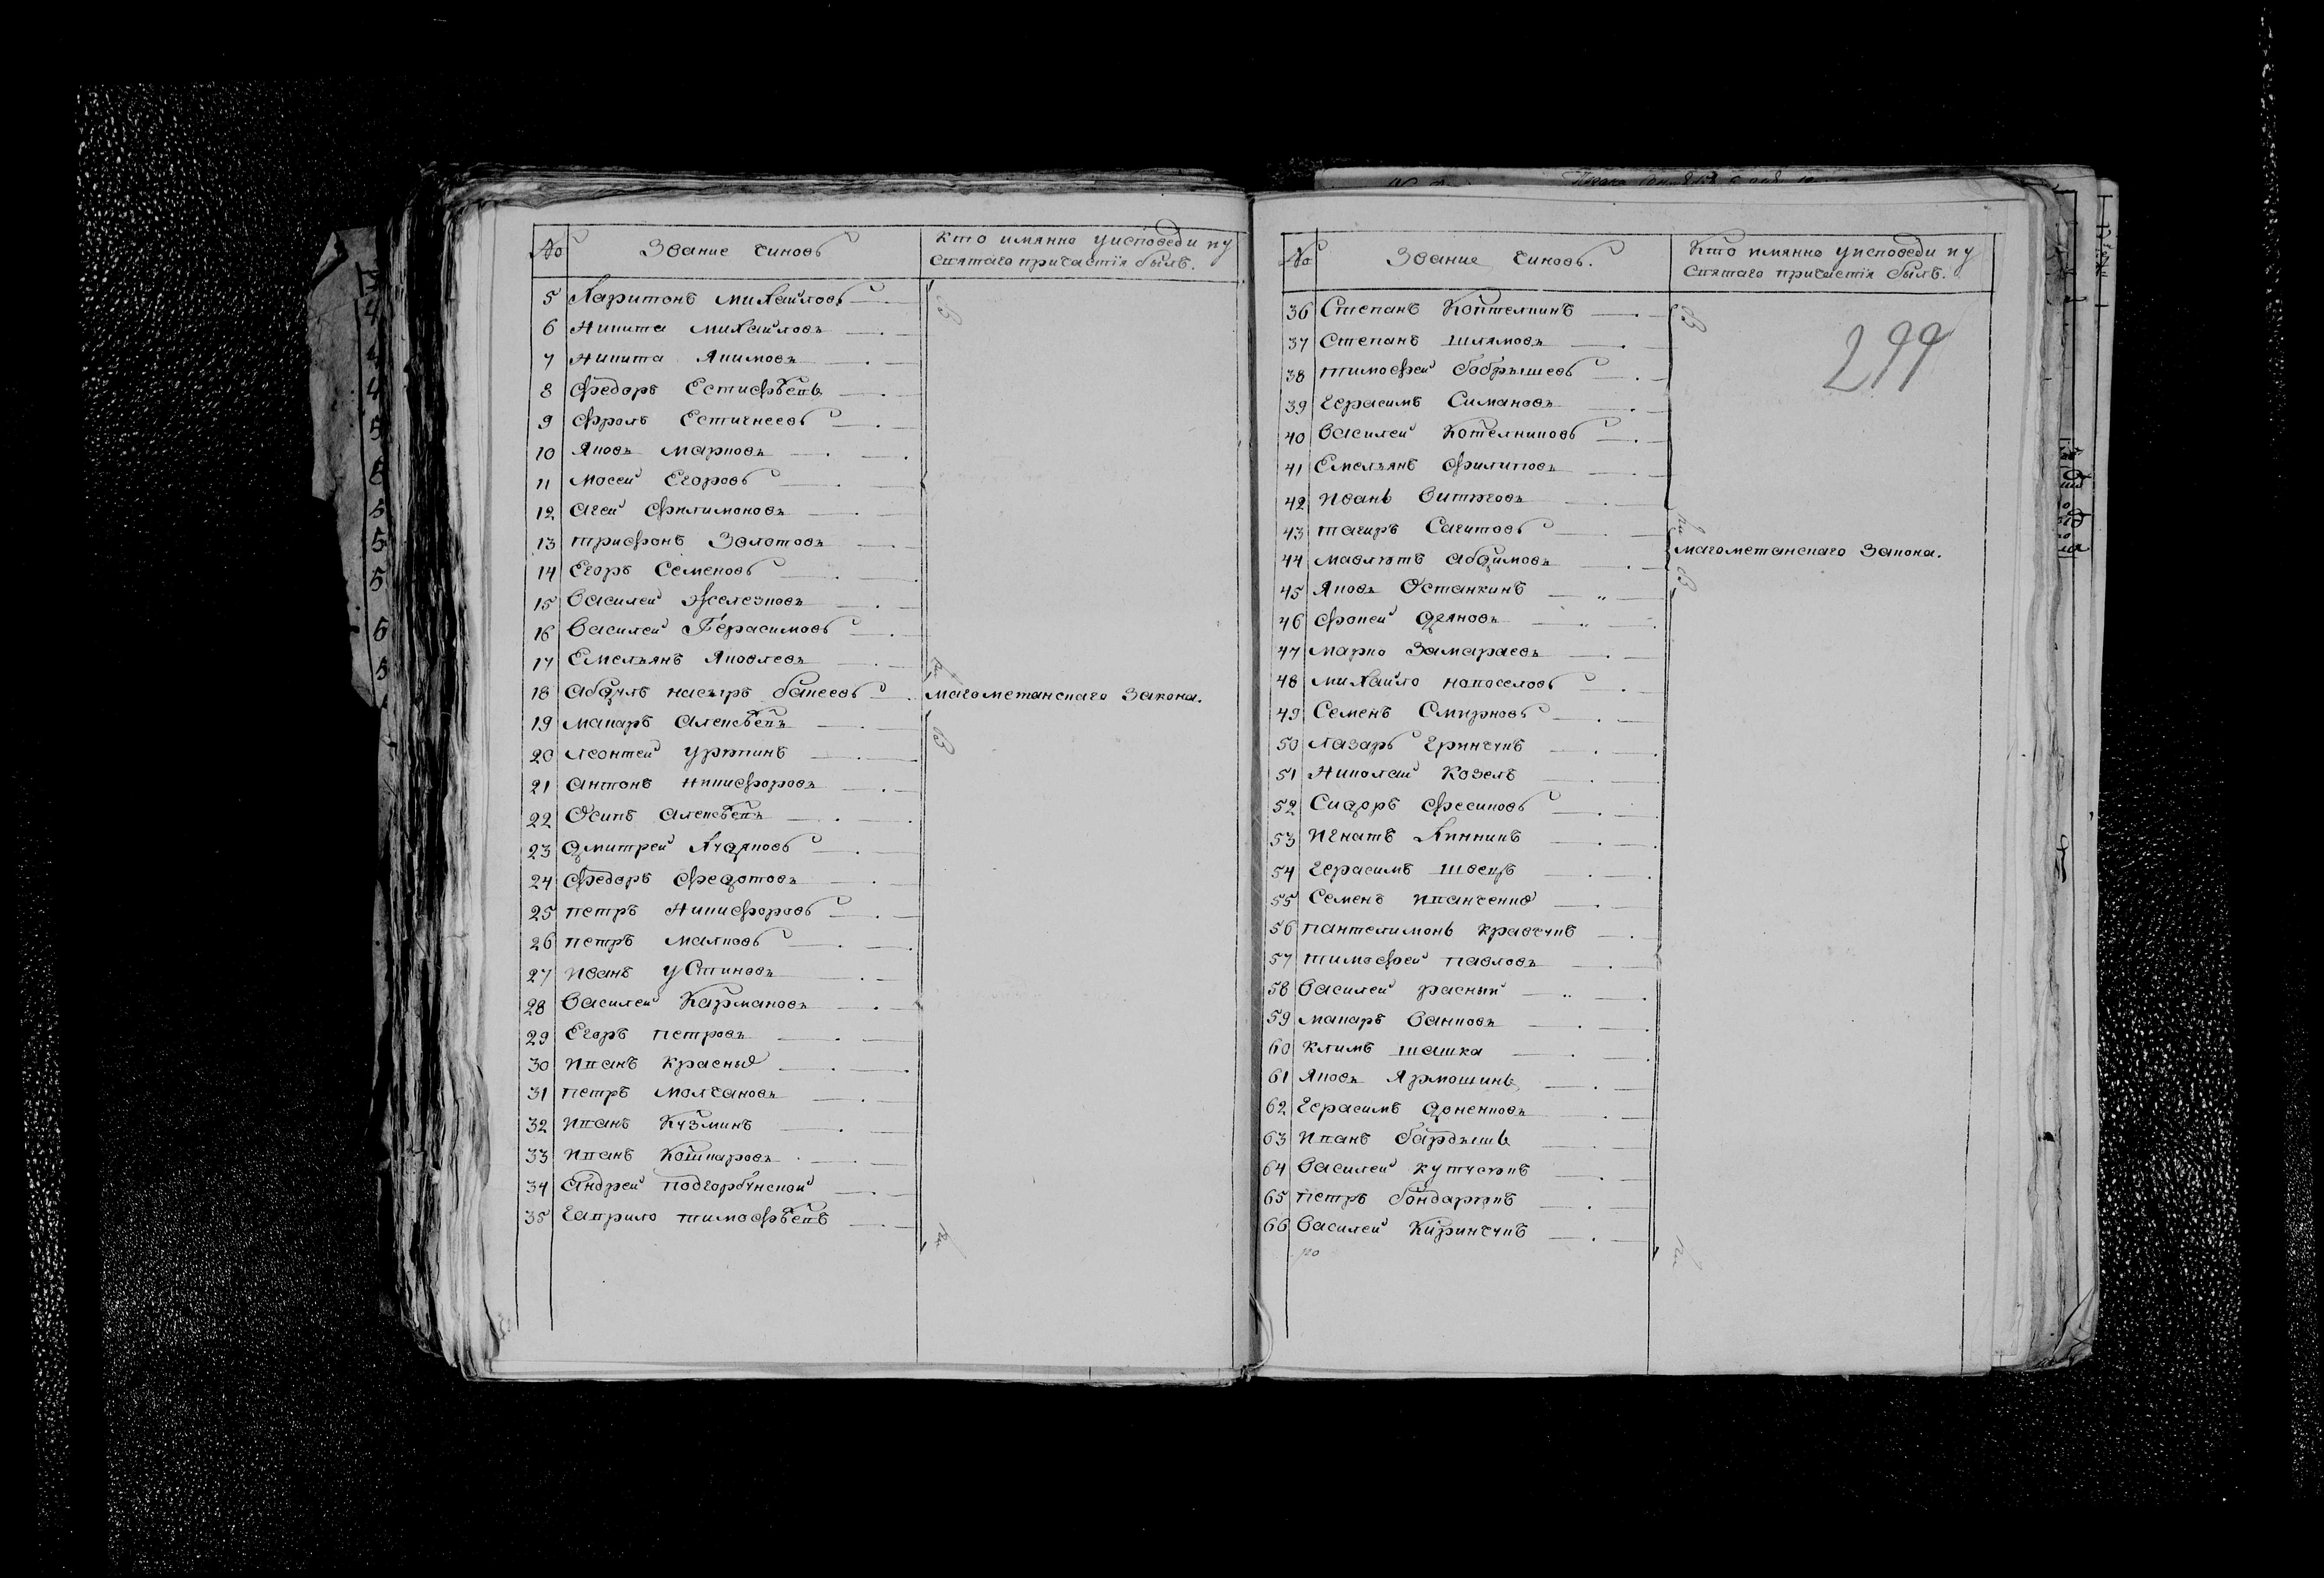 № Звание чиновъ кто имянно уисповеди иу
Святаго причастія былъ.
5 Харитонъ михайловъ
6 Никита михайловъ
7 Никита Якимовъ
8 Федоръ Естифѣевъ
9 Фролъ Естигнеевъ
10 Яковъ марковъ
11 мосей Егоровъ
12 агей Филимоновъ
13 трифонъ Золотовъ
14 Егоръ Семеновъ
15 Василей Железновъ
16 Василей Герасимовъ
17 Емельянъ Яковлевъ
18 абдулъ насыръ бакеевъ магометанскаго закона.
19 макаръ алексѣевъ
20 леонтей
21 антонъ Никифоровъ
22 Осипъ алексѣевъ
23 дмитрей
24 Федоръ Федотовъ
25 петръ Никифоровъ
26 петръ маяковъ
27 иванъ устиновъ
28 Василей Кармановъ
29 Егоръ петровъ
30 иванъ красный
31 петръ молчановъ
32 иванъ кузминъ
33 иванъ Кошкаровъ
34 андрей подгорбунской
35 гаврило тимофѣевъ
№ Звание чиновъ. кто имянно уисповеди иу
Святаго причастія былъ.
299
36 Степанъ
37 Степанъ шлямовъ
38 тимофей бобрышевъ
39 герасимъ Симановъ
40 Василей Котелниковъ
41 Емельянъ филиповъ
42 иванъ Витяговъ
43 тагиръ Сагитовъ
магометанскаго закона.
44 мавлютъ абдимовъ
45 Яковъ Останкинъ
46 фокей деяновъ
47 марко Замараевъ
48 михайло новоселовъ
49 Семенъ Смирновъ
50 лазарь гринчукъ
51 николай козелъ
52 Сидоръ фесиковъ
53 игнатъ
54 герасимъ швецъ
55 Семенъ иванченко
56 пантелимонъ кравчукъ
57 тимофей павловъ
58 Василей расный
59 макаръ Ванновъ
60 климъ шашка
61 Яковъ Ярмошинъ
62 герасимъ доненковъ
63 иванъ бардышъ
64 Василей
65 петръ бондарюкъ
66 Василей Киринчукъ